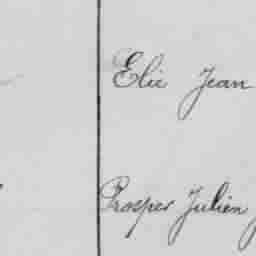 Elie Jean
Prosper Julien